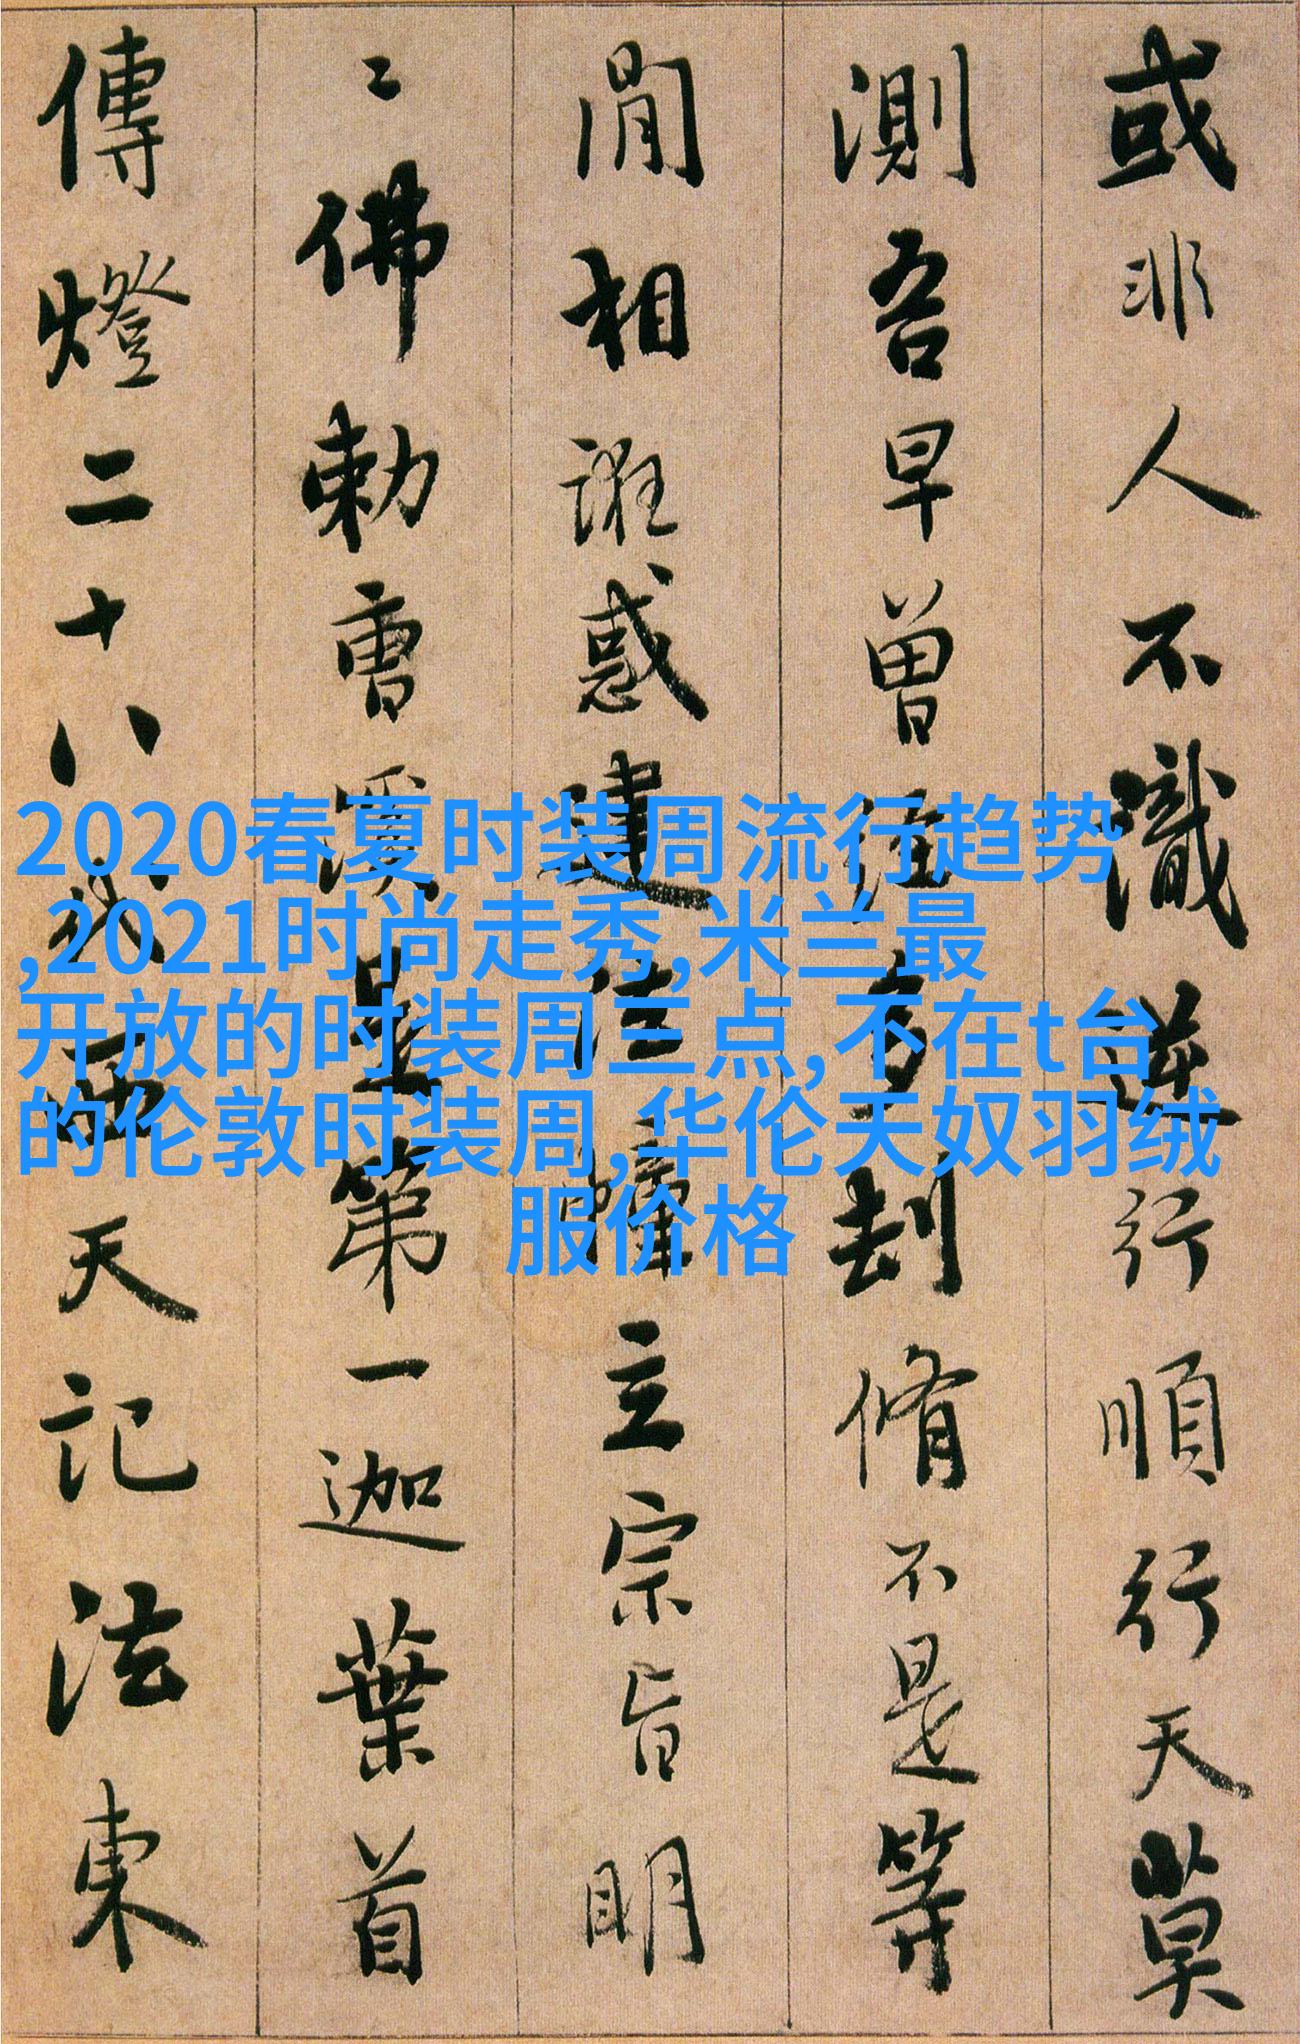 或非人不識逆行順行天莫
測吾早曾經多劫脩不是等
閒相誑惑建法幢立宗旨明
〻佛勅曹溪是第一迦葉首
傳燈二十八代西天記法東
2020春夏时装周流行趋势
,2021时尚走秀,米兰最
开放的时装周三点,不在t台
的伦敦时装周,华伦天奴羽绒
服价格